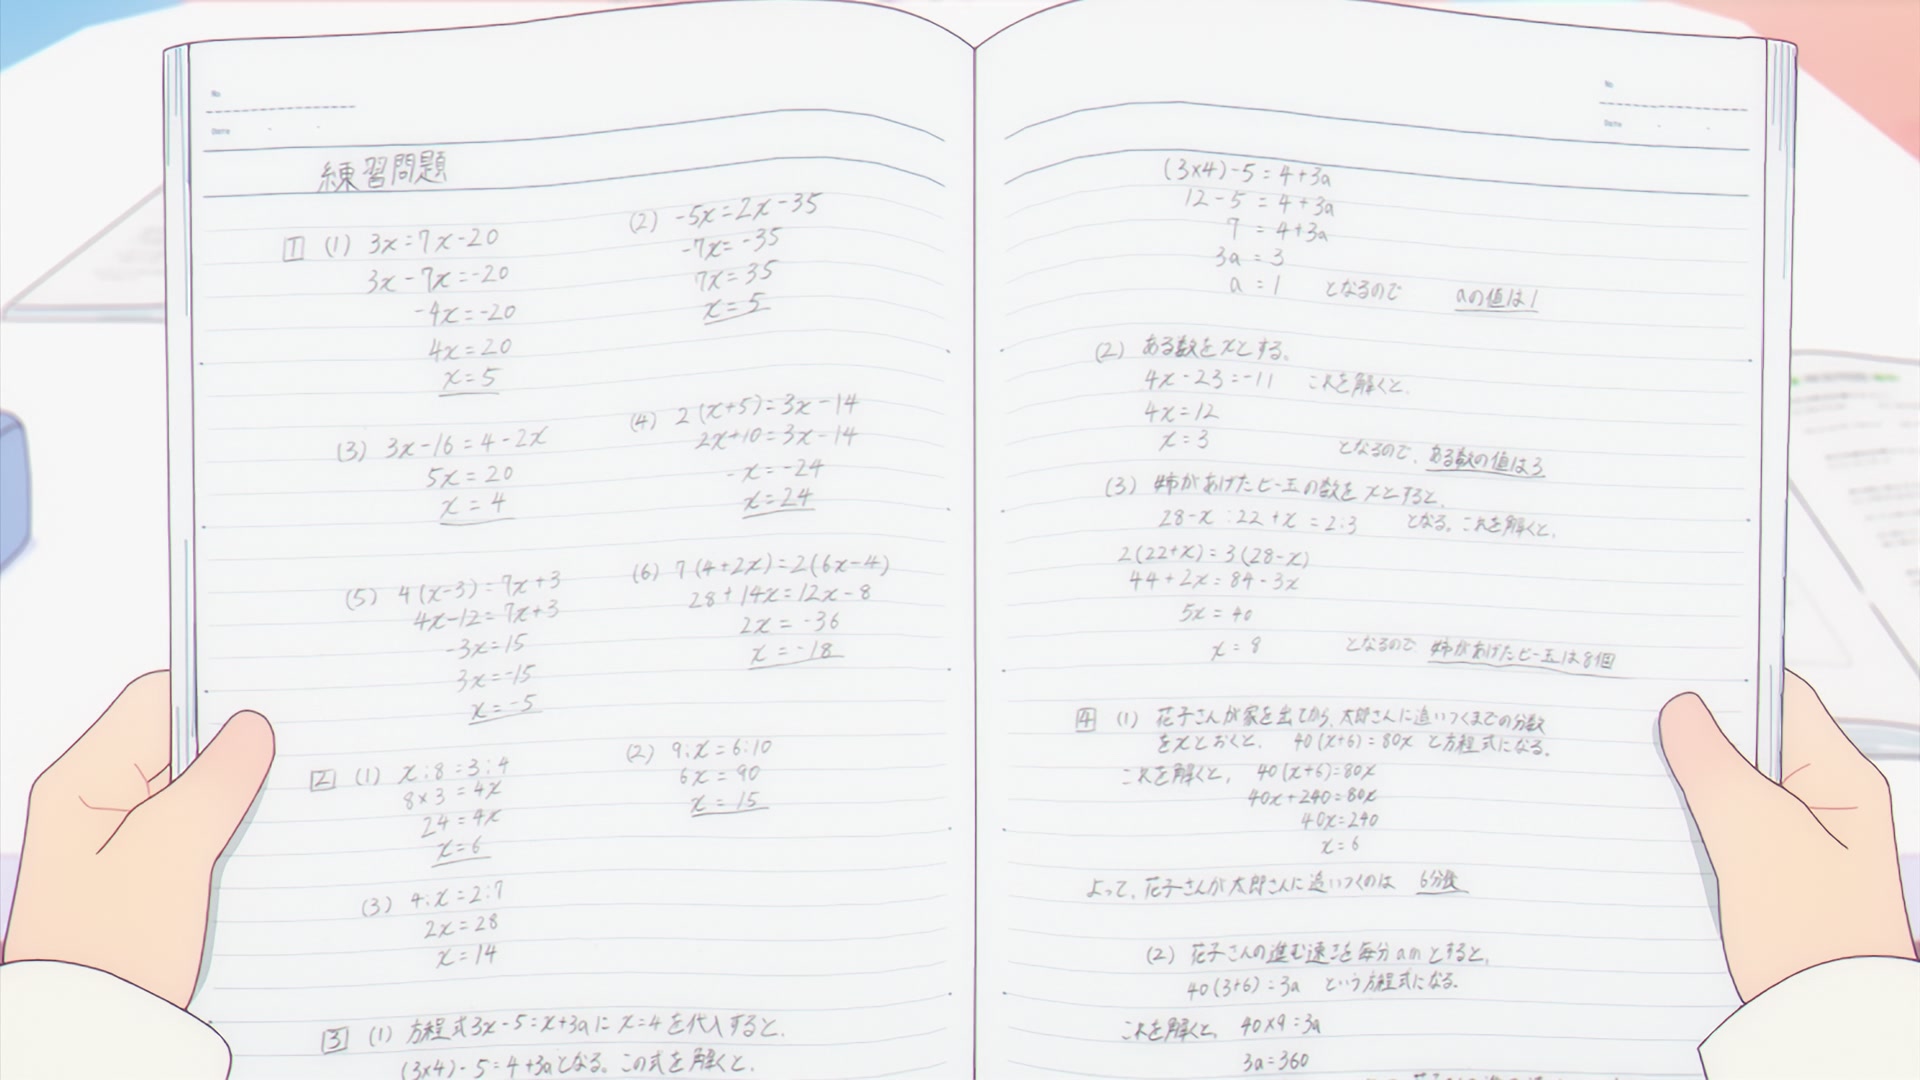 No
Date
練習問題
1 (1) 3x=7x-20
3x-7x=-20
-4x=-20
4x=20
x=5
(2) -5x=2x-35
-7x=-35
7x=35
x=5
(3) 3x-16=4-2x
5x=20
x=4
(4) 2(x+5)=3x-14
2x+10=3x-14
-x=-24
x=24
(5) 4(x-3)=7x+3
4x-12=7x+3
-3x=15
3x=-15
x=-5
(6) 7(4+2x)=2(6x-4)
28+14x=12x-8
2x=-36
x=-18
2 (1) x:8=3:4
8×3=4x
24=4x
x=6
(2) 9:x=6:10
6x=90
x=15
(3) 4:x=2:7
2x=28
x=14
3 (1) 方程式3x-5=x+3aにx=4を代入すると、
(3×4)-5=4+3aとなる。この式を解くと、
No
Date
(3×4)-5=4+3a
12-5=4+3a
7=4+3a
3a=3
a=1 となるので aの値は1
(2) ある数をxとする。
4x-23=-11 これを解くと、
4x=12
x=3 となるので、ある数の値は3
(3) 姉があげたビー玉の数をxとすると、
28-x:22+x=2:3 となる。これを解くと、
2(22+x)=3(28-x)
44+2x=84-3x
5x=40
x=8 となるので 姉があげたビー玉は8個
4 (1) 花子さんが家を出てから、太郎さんに追いつくまでの分数
をxとおくと、 40(x+6)=80x と方程式になる。
これを解くと、 40(x+6)=80x
40x+240=80x
40x=240
x=6
よって、花子さんが太郎さんに追いつくのは 6分後
(2) 花子さんの進む速さを毎分amとすると、
40(3+6)=3a という方程式になる。
これを解くと、 40×9=3a
3a=360